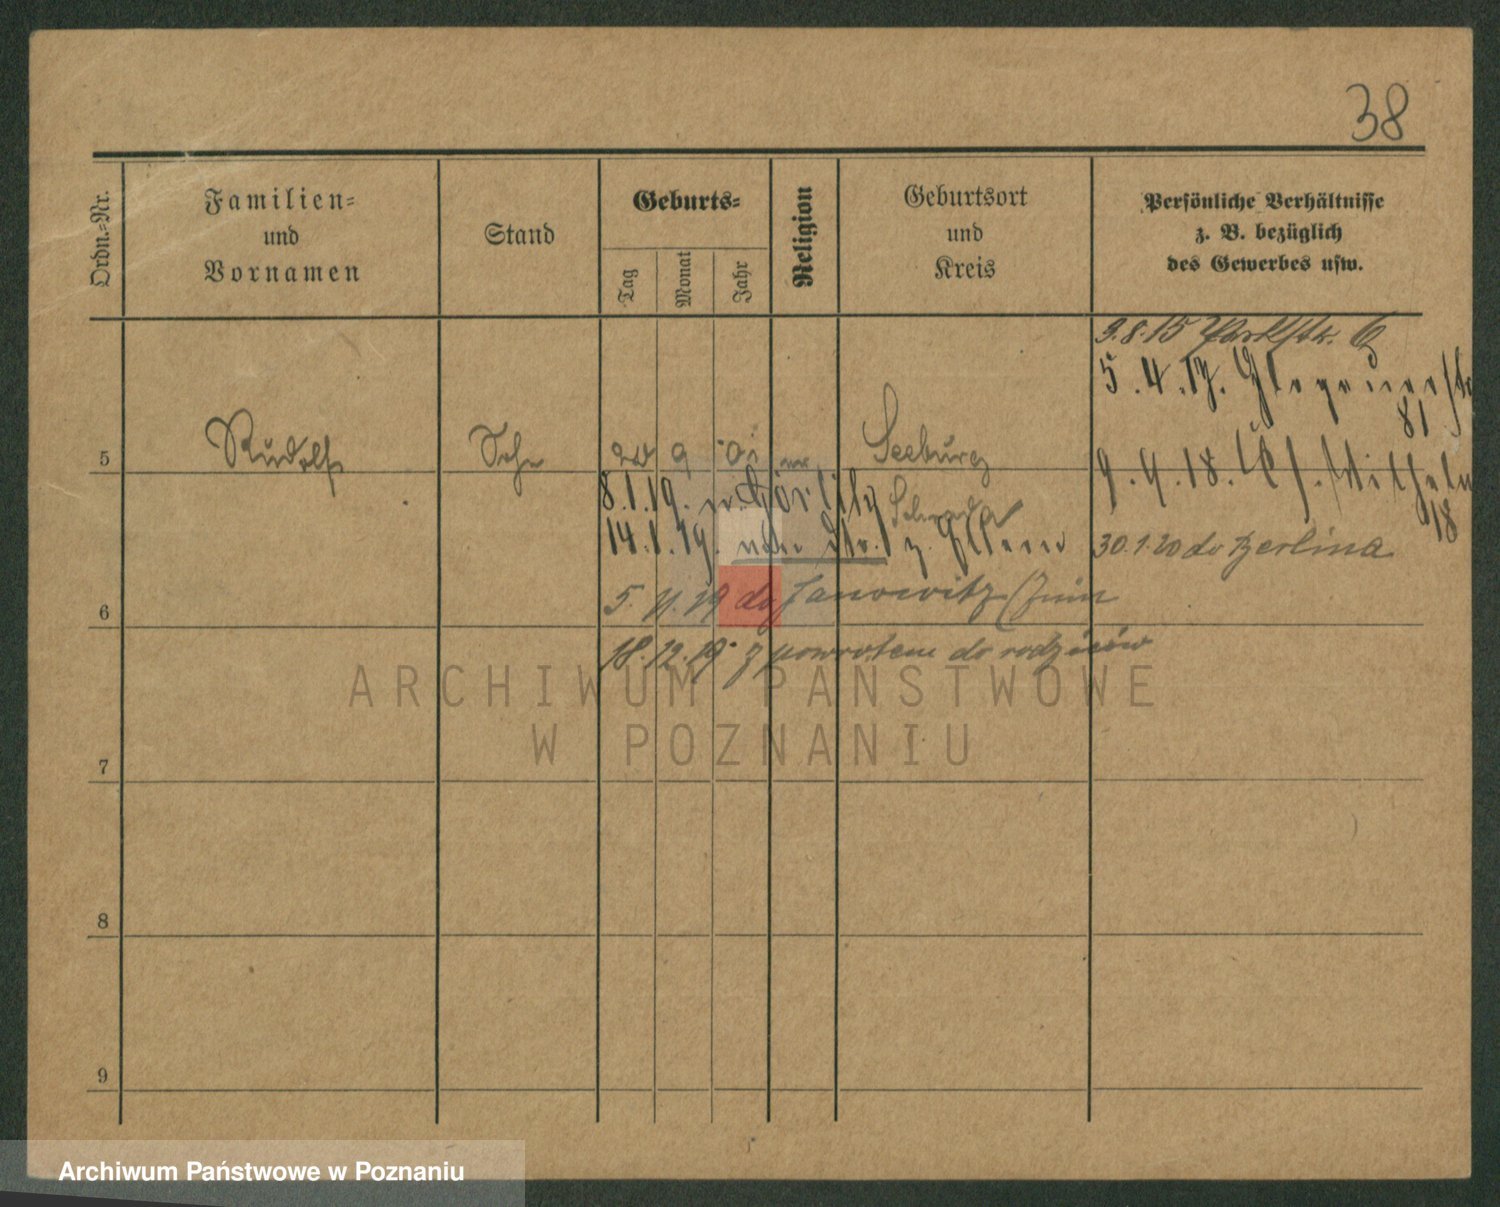 38
Ordn.-Nr.
Familien-
und
Vornamen
Stand
Geburts-
Tag
Monat
Jahr
Religion
Geburtsort
und
Kreis
Persönliche Verhältnisse
z. B. bezüglich
des Gewerbes usw.
3.8.15 Parkstr. 6
5.4.17. Glogauerstr
81
5 Rudolf Sohn 20 9 01 Seeburg
9.4.18. Wilhelm
18
8.1.19. n. Görlitz
Schroda
14.1.19. z. Eltern
30.1.20 do Berlina
6 5. 11. 19 do Janowitz (Żnin
18.12.19 z powrotem do rodziców
ARCHIWUM PAŃSTWOWE
W POZNANIU
7
8
9
Archiwum Państwowe w Poznaniu